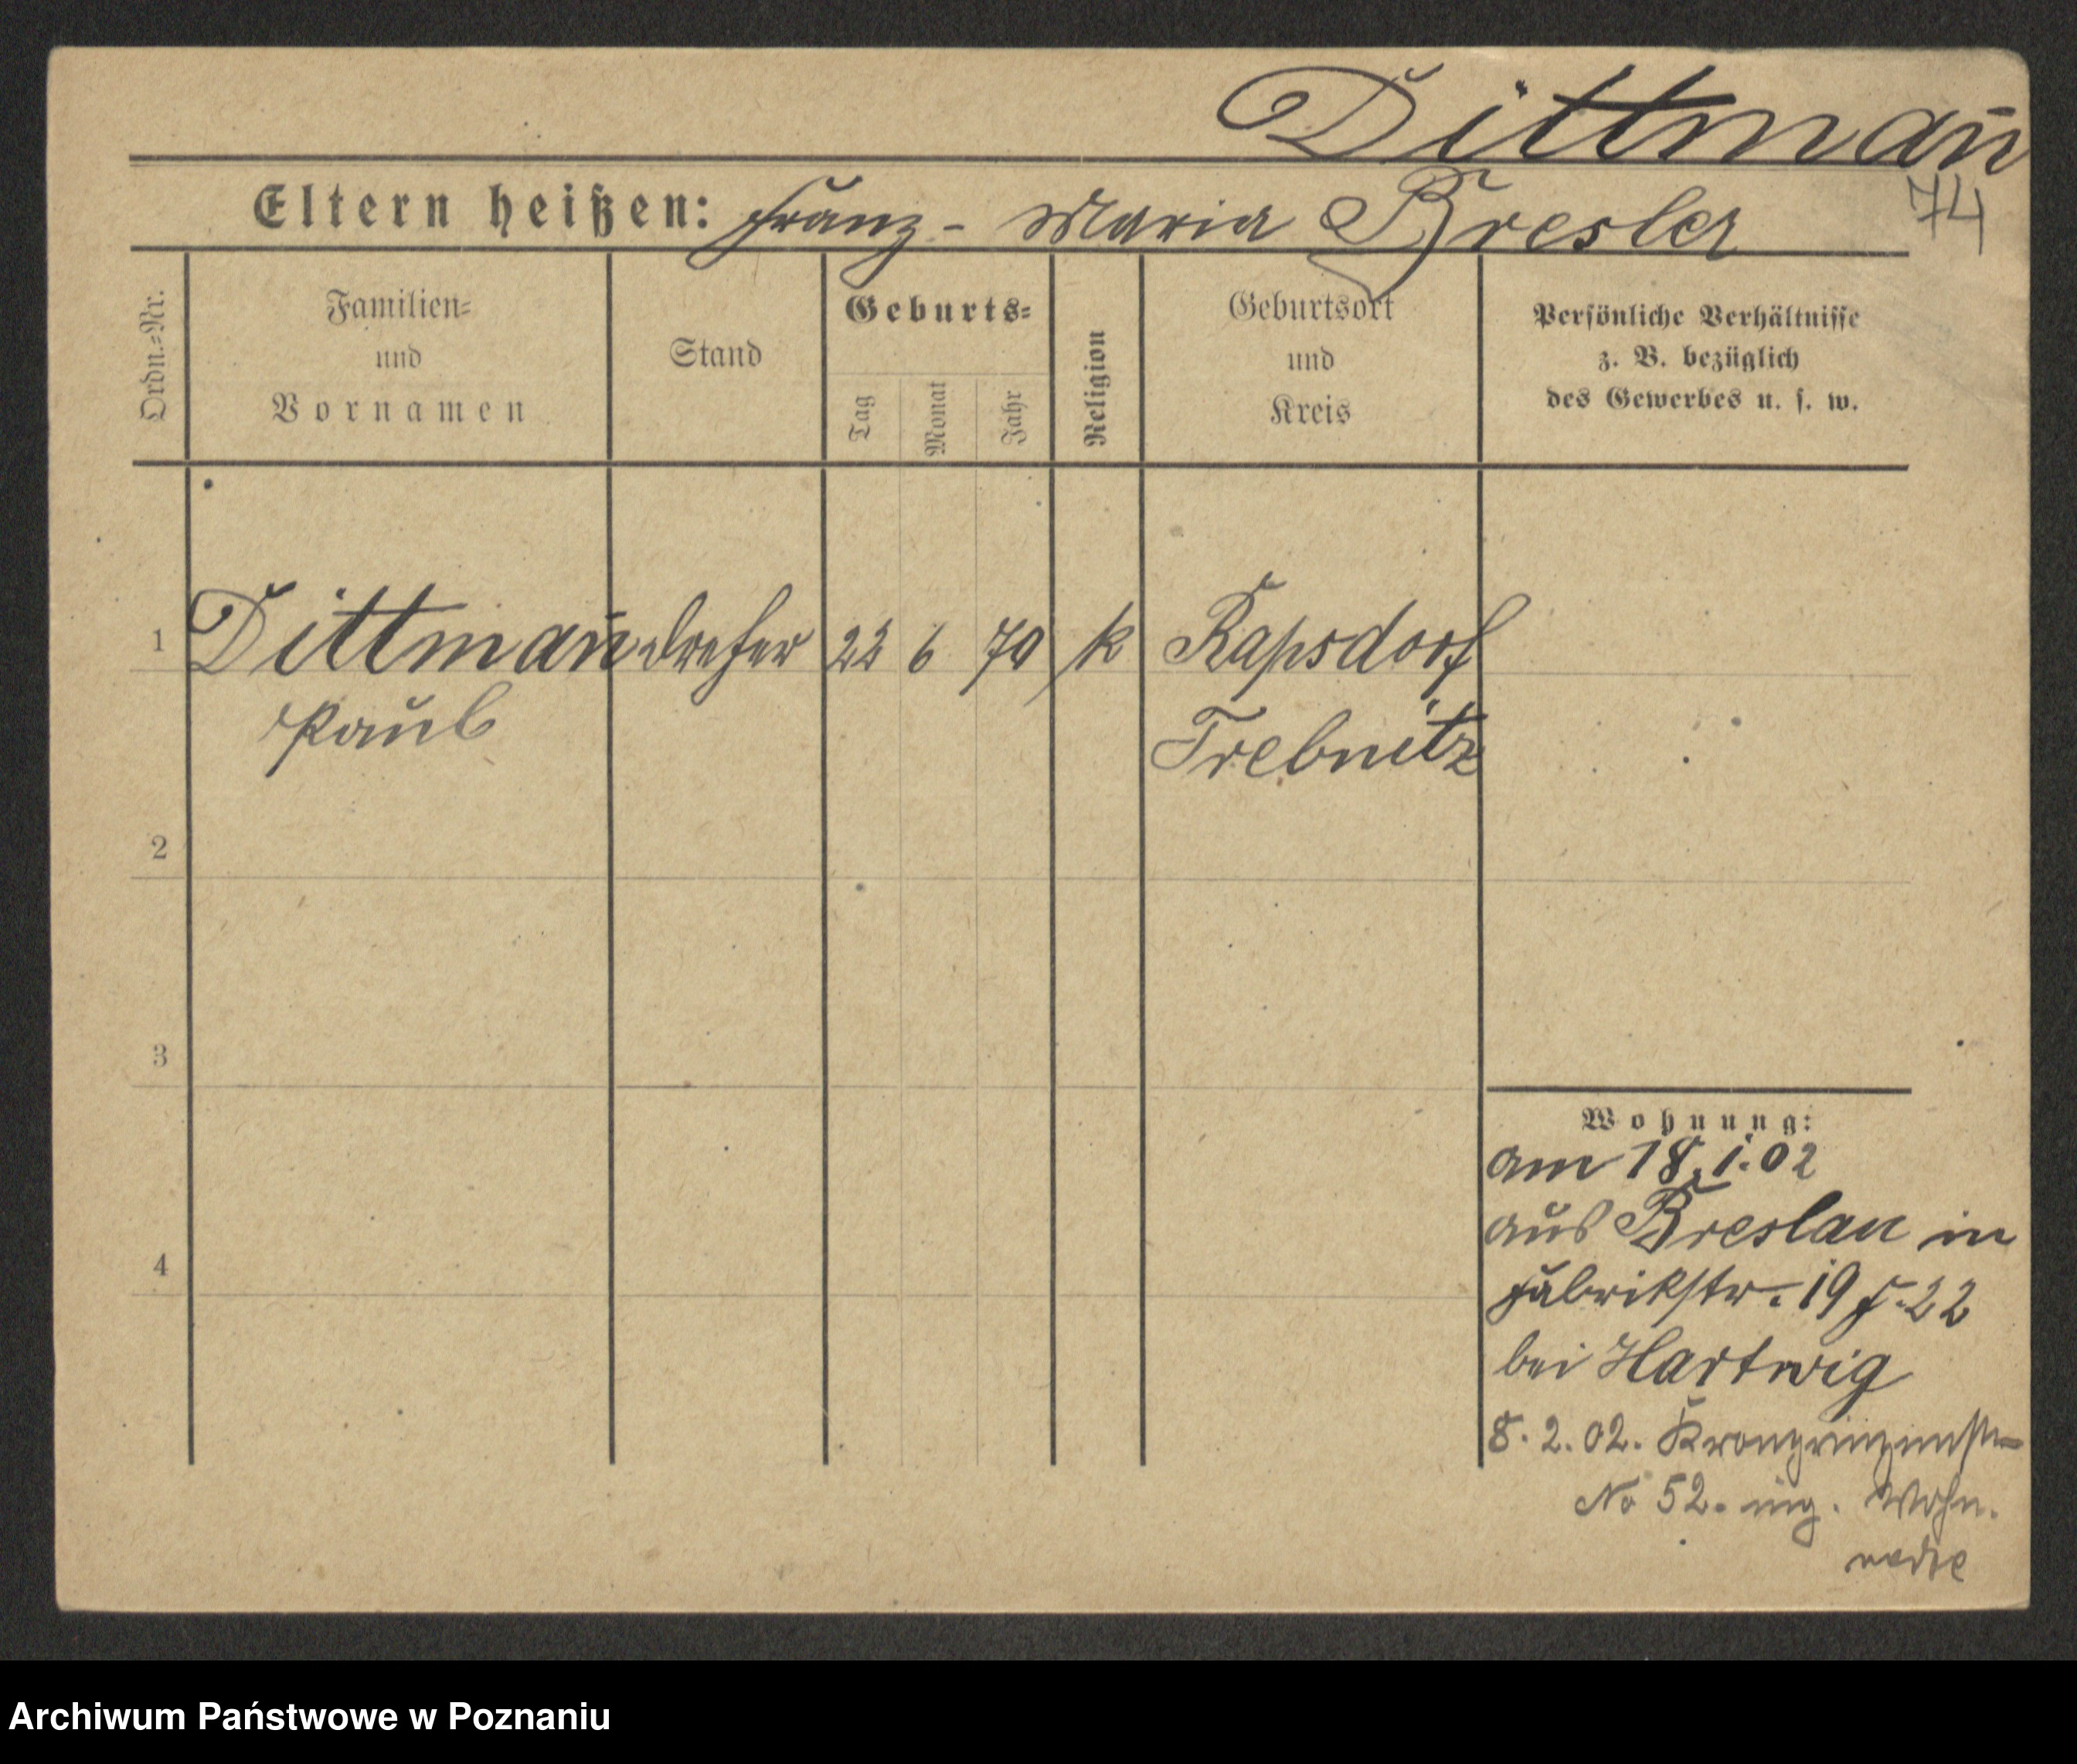 Dittman̄
74
Eltern heißen: Franz - Maria Bresler
Ordn.=Nr.
Familien=
und
Vornamen
Stand
Geburts=
Tag
Monat
Jahr
Religion
Geburtsort
und
Kreis
Persönliche Verhältnisse
z. B. bezüglich
des Gewerbes u. s. w.
1 Dittman̄ Dreher 22 6 70 k Kapsdorf
Paul Trebnitz
2
3
4
Wohnung:
am 18. 1. 02
aus Breslau in
Fabrikstr. 19 F. 22
bei Hartwig
8. 2. 02. Kronprinzenstr
No 52. Wohn.
Archiwum Państwowe w Poznaniu